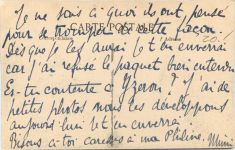 Je ne sais à quoi ils ont pensé
pour se tromper de cette façon.
Dès que je les aurai je t'en enverrai
car j'ai refusé le paquet bien entendu
Es-tu contente à Yzeron ? J'ai de
petites photos nous les développons
aujourd'hui je t'en enverrai.
à toi caresses à ma Philine. Mimi